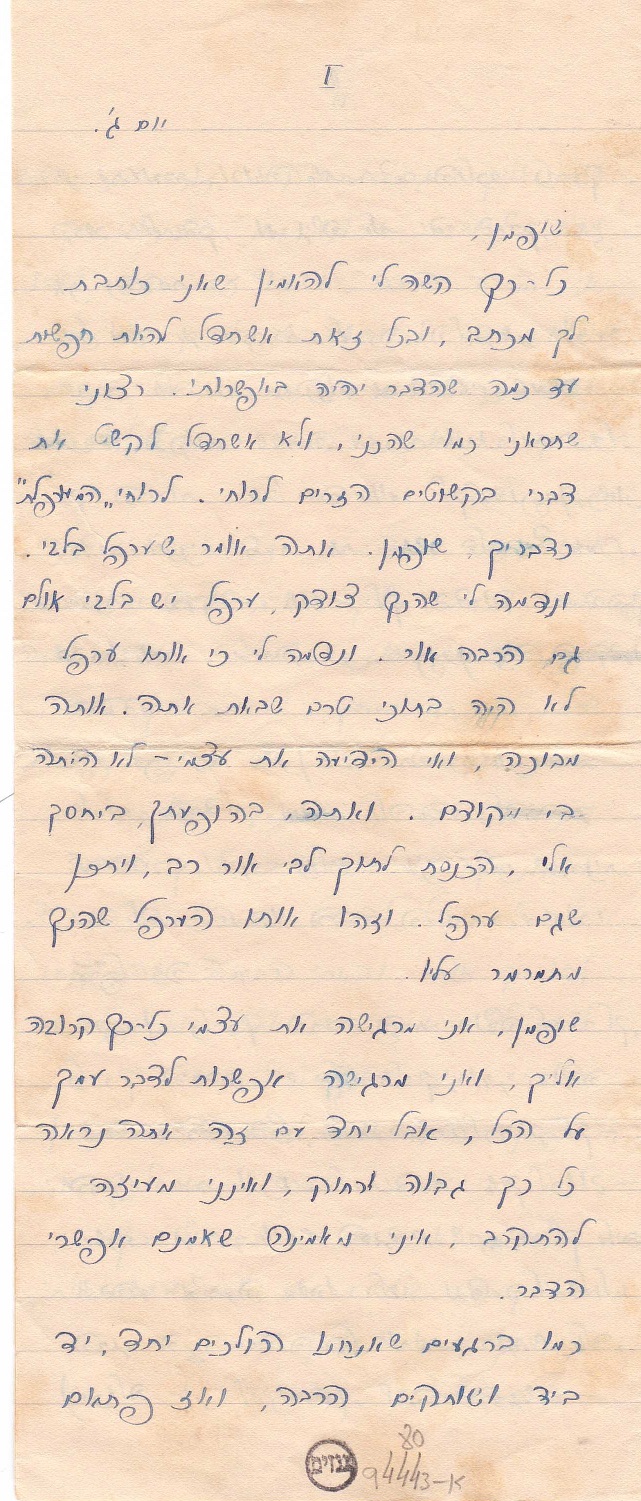 I
יום ג'.
שופמן,
כל-כך קשה לי להאמין שאני כותבת
לך מכתב, ובכל זאת אשתדל להיות חפשית
עד כמה שהדבר יהיה באפשרותי. רצוני
שתראני כמו שהנני, ולא אשתדל לקשט את
דברי בקשוטים הזרים לרוחי. לרוחי "המעורפלת"
כדבריך, שופמן. אתה אומר שערפל בלבי.
ונדמה לי שהנך צודק, ערפל יש בלבי אולם
גם הרבה אור. ונדמה לי כי אותו ערפל
לא היה בתוכי טרם שבאת אתה. אותה
מבוכה, ואי הידיעה את עצמי – לא היתה
בי מקודם. ואתה, בהופעתך, ביחסך
אלי, הכנסת לתוך לבי אור רב, ויתכן
שגם ערפל. וזהו אותו הערפל שהנך
מתמרמר עליו.
שופמן, אני מרגישה את עצמי כל-כך קרובה
אליך, ואני מרגישה אפשרות לדבר עמך
על הכל, אבל יחד עם זה אתה נראה
כל כך גבוה ורחוק, ואינני מעיזה
להתקרב, איני מאמינה שאמנם אפשרי
הדבר.
כמו ברגעים שאנחנו הולכים יחד, יד
ביד ושותקים הרבה, ואז פתאום
גנזים
80
94443-א